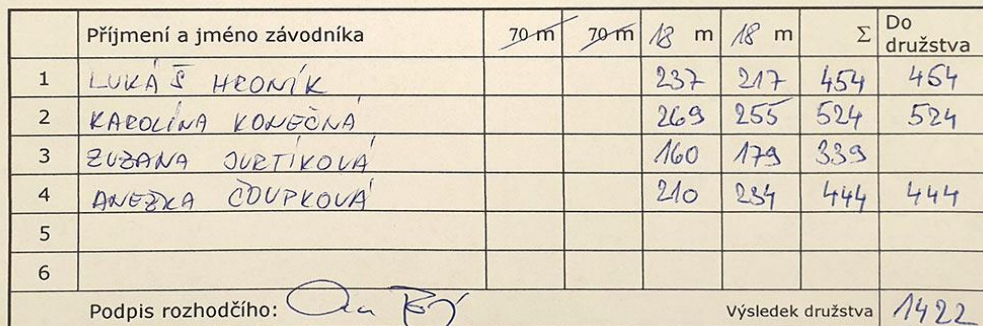 Příjmení a jméno závodníka 70 m 70 m 18 m 18 m Σ Do družstva
1 LUKÁŠ HRONÍK 237 217 454 454
2 KAROLÍNA KONEČNÁ 269 255 524 524
3 ZUZANA JURTÍKOVÁ 160 179 339
4 ANEŽKA ČOUPKOVÁ 210 234 444 444
5
6
Podpis rozhodčího: Výsledek družstva 1422